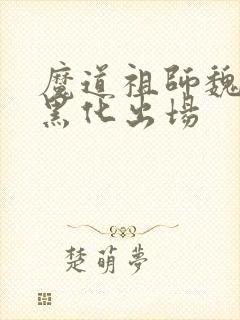 魔道祖師魏
黑化出場
楚萌夢